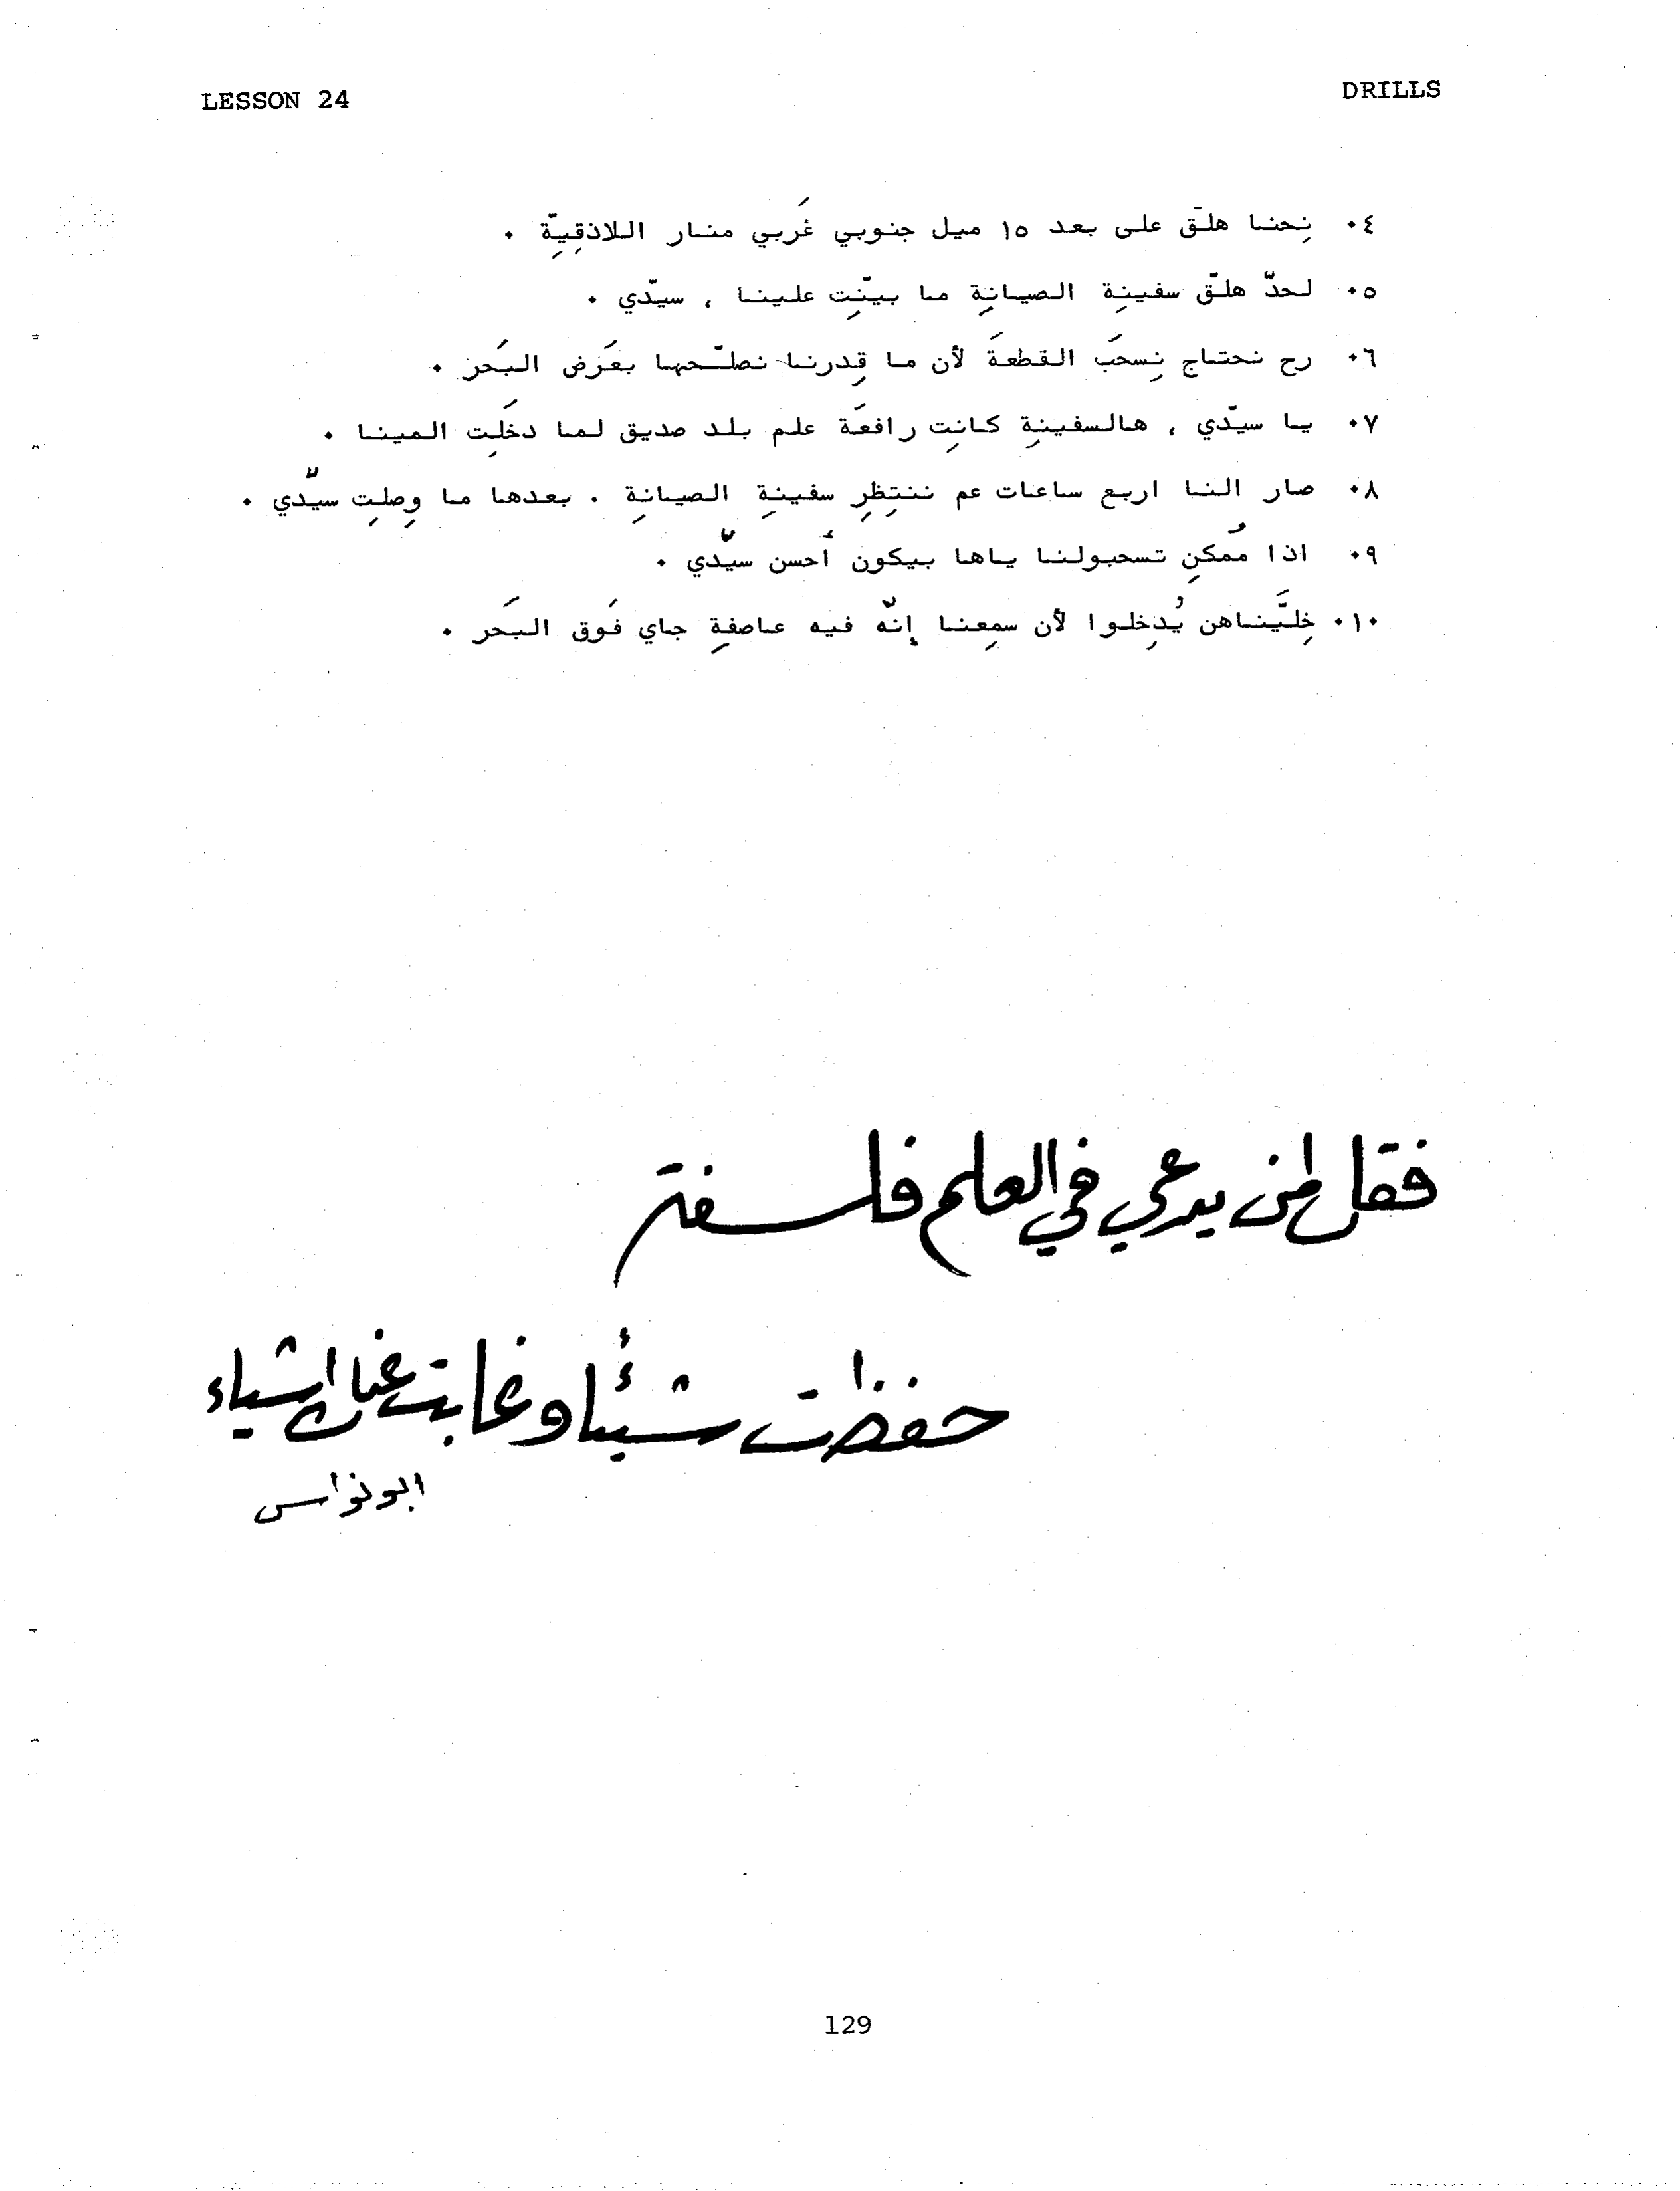 LESSON 24
DRILLS
٤. نِحنا هلّق على بعد ١٥ ميل جنوبي غَربي منار اللاذقِيِّة .
٥. لحدّ هلّق سفينِة الصيانِة ما بيّنِت علينا ، سيّدي .
٦. رح نحتاج نِسحَب القطعَة لأن ما قِدرنا نصلّحها بعَرض البَحر .
٧. يا سيّدي ، هالسفينِة كانِت رافعَة علم بلد صديق لما دخَلِت المينا .
٨. صار النا اربع ساعات عم ننتِظِر سفينِة الصيانِة . بعدها ما وِصلِت سيّدي .
٩. اذا مُمكِن تسحبولنا ياها بيكون أحسن سيّدي .
١٠. خِلَّيناهن يُدخِلوا لأن سمِعنا إنّه فيه عاصفِة جاي فَوق البَحر .
فقل لمن يدعي في العلم فلسفة
حفظت شيئا وغابت عنك اشياء
ابو نواس
129